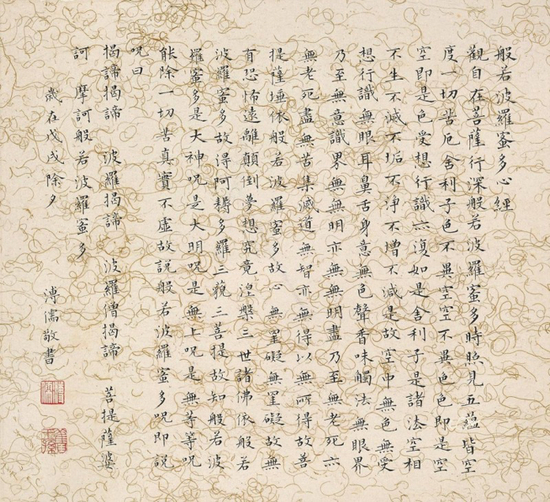 般若波羅蜜多心經
觀自在菩薩行深般若波羅蜜多時照見五蘊皆空
度一切苦厄舍利子色不異空空不異色色即是空
空即是色受想行識亦復如是舍利子是諸法空相
不生不滅不垢不淨不增不減是故空中無色無受
想行識無眼耳鼻舌身意無色聲香味觸法無眼界
乃至無意識界無無明亦無無明盡乃至無老死亦
無老死盡無苦集滅道無智亦無得以無所得故菩
提薩埵依般若波羅蜜多故心無罣礙無罣礙故無
有恐怖遠離顛倒夢想究竟涅槃三世諸佛依般若
波羅蜜多故得阿耨多羅三藐三菩提故知般若波
羅蜜多是大神呪是大明呪是無上呪是無等等呪
能除一切苦真實不虛故說般若波羅蜜多呪即說
呪曰
揭諦揭諦 波羅揭諦 波羅僧揭諦 菩提薩婆
訶 摩訶般若波羅蜜多
歲在戊戌除夕 溥儒敬書